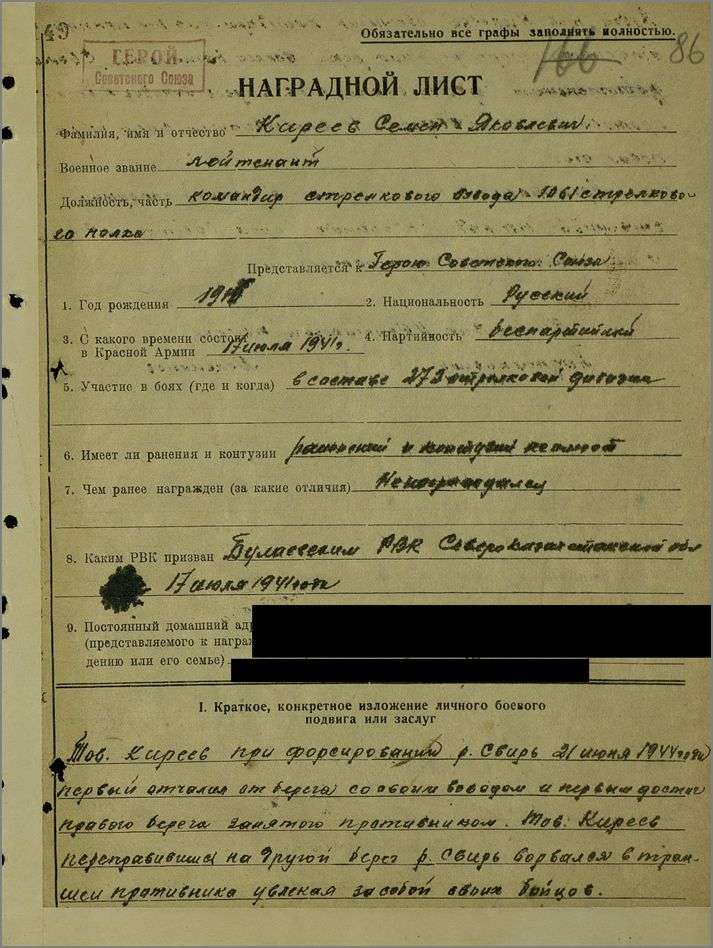 49
Обязательно все графы заполнять полностью.
166 86
ГЕРОЙ
Советского Союза
НАГРАДНОЙ ЛИСТ
Фамилия, имя и отчество Киреев Семен Яковлевич.
Военное звание лейтенант
Должность, часть командир стрелкового взвода 1061 стрелково-
го полка
Представляется к Герою Советского Союза
1. Год рождения 2. Национальность Русский
3. С какого времени состоит 4. Партийность беспартийный
в Красной Армии 17 июля 1941 г.
5. Участие в боях (где и когда) в составе 272 стрелковой дивизии
6. Имеет ли ранения и контузии ранений и контузий не имеет
7. Чем ранее награжден (за какие отличия) Не награждался
8. Каким РВК призван Булаевским РВК Северо Казахстанской обл
17 июля 1941 года
9. Постоянный домашний адр
(представляемого к награ
дению или его семье)
I. Краткое, конкретное изложение личного боевого
подвига или заслуг
Тов. Киреев при форсировании р. Свирь 21 июня 1944 года
первый отчалил от берега со своим взводом и первым достиг
правого берега занятого противником. Тов. Киреев
переправившись на другой берег р. Свирь ворвался в тран-
шеи противника увлекая за собой своих бойцов.